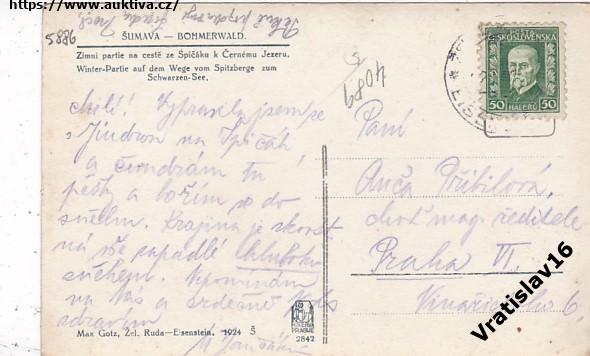 https://www.auktiva.cz/
5886
ŠUMAVA – BOHMERWALD.
Zimní partie na cestě ze Špičáku k Černému Jezeru.
Winter-Partie auf dem Wege vom Spitzberge zum
Schwarzen-See.
4089
ČESKOSLOVENSKÁ
50 HALÉŘŮ 50
Milí! Vypravila jsem se
s Jindrou na Špičák
a čundrám tu
pěšky a bořím se do
sněhu. Krajina je skorst
ná vše zapadlé hluboko
sněhem. Vzpomínám
na Vás a srdečně Vás
zdravím
Paní
Anča Přibilová,
choť mag. ředitele
Praha VI.
6.
Max Gotz, Žel. Ruda–Eisenstein. 1924 Š
MINERVA
PRAGUE
2842
Vratislav16